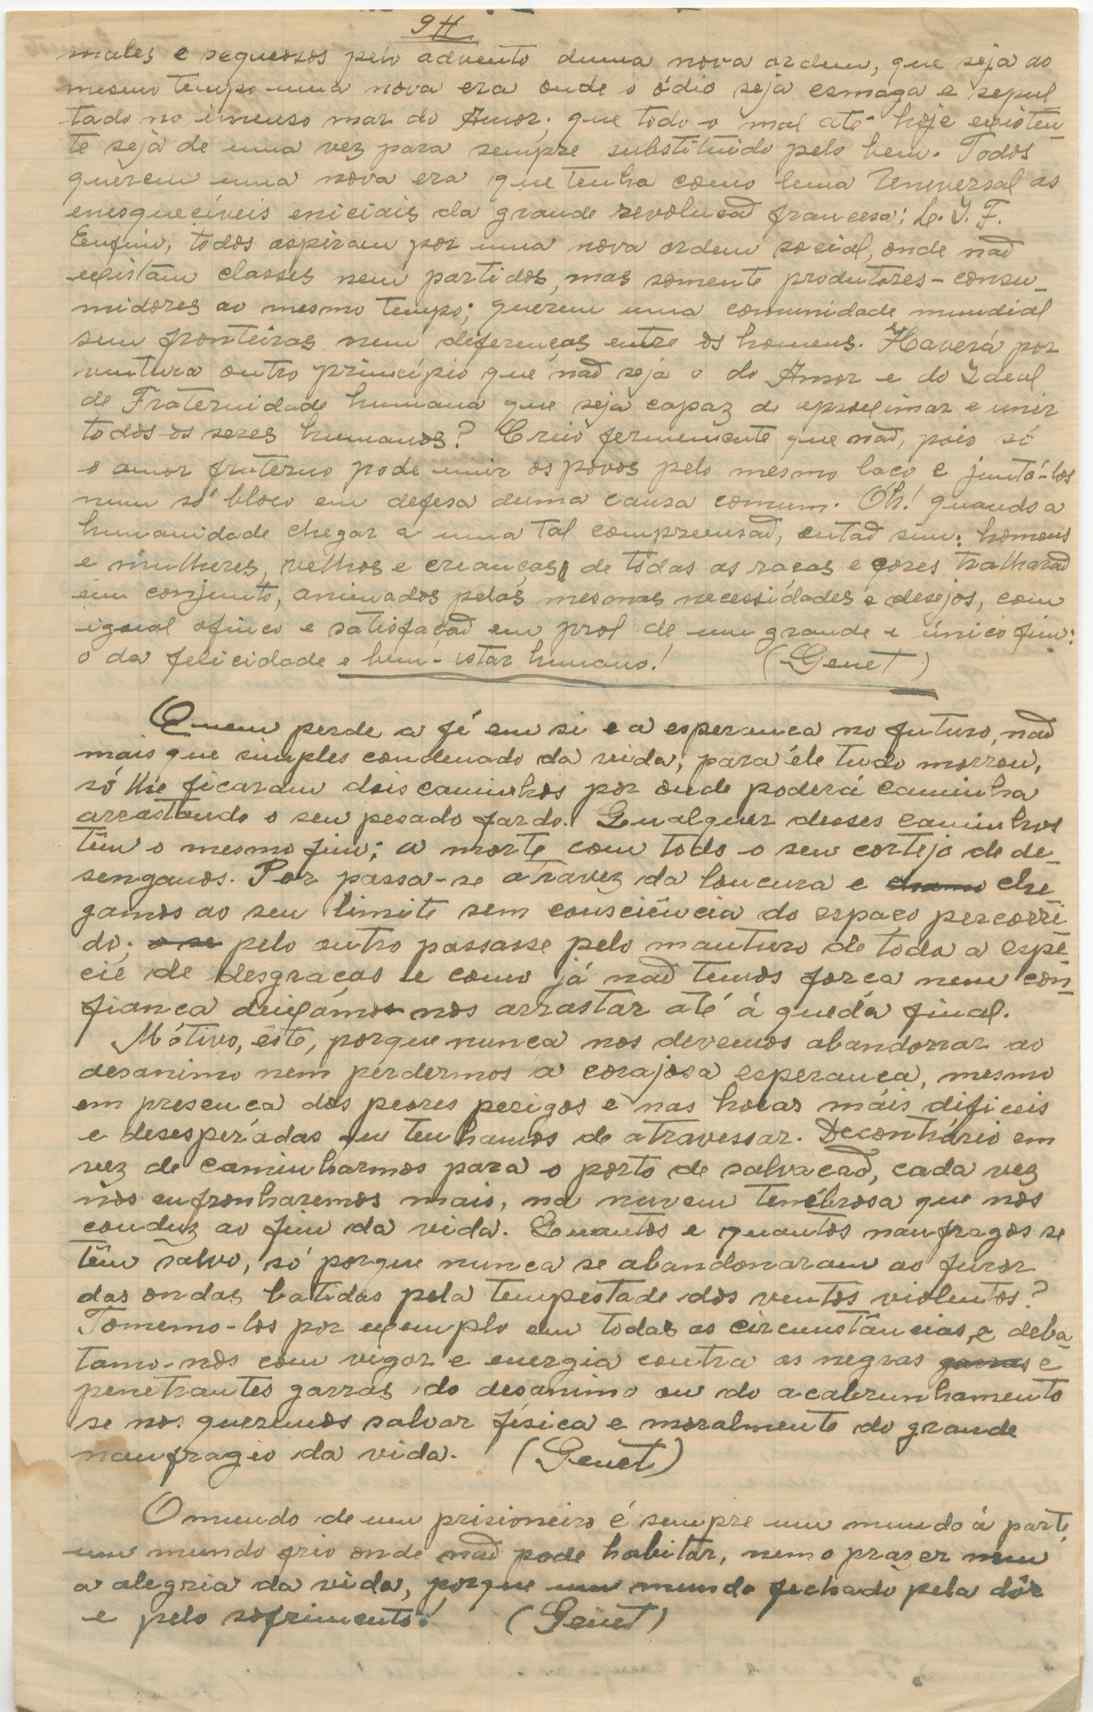 9H
males e sequiosos pelo advento duma nova ordem, que seja ao
mesmo tempo uma nova era onde o ódio seja esmaga e sepul
tado no imenso mar do Amor; que todo o mal até hoje existen-
te seja de uma vez para sempre substituido pelo bem. Todos
querem uma nova era que tenha como lema Universal as
enesqueciveis eniciais da grande revolucaõ francesa: L. I. F.
Enfim, todos aspiram por uma nova ordem social, onde naõ
existãm classes nem partidos, mas somente produtores-consu-
midores ao mesmo tempo; querem uma comunidade mundial
sem fronteiras nem diferenças entre os homens. Haverá por
ventura outro princípio que naõ seja o do Amor e do Ideal
de Fraternidade humana que seja capaz de aproximar e unir
todos os seres humanos? Creio fermemente que naõ, pois só
o amor fraterno pode unir os povos pelo mesmo laco e juntá-los
num só bloco em defesa duma causa comum. Oh! quando a
humanidade chegar a uma tal compreensaõ, entaõ sim: homens
e mulheres, velhos e creanças, de tôdas as raças e côres tralharaõ
em conjunto, animados pelas mesmas necessidades e desejos, com
igual afinco e satisfaçaõ em prol de um grande e único fim:
o da felicidade e bem-estar humano! (Genet)
Quem perde a fé em si e a esperanca no futuro, naõ
mais que simples condenado da vida; para êle tudo morreu,
só lhe ficaram dois caminhos por onde poderá caminha
arrastando o seu pesado fardo. Qualquer desses caminhos
têm o mesmo fim; a morte com todo o seu cortejo de de-
senganos. Por passa-se atravez da loucura e che
gamos ao seu limite sem consciência do espaco percorri-
do; pelo outro passasse pelo manturo de toda a espé-
cie de desgracas e como já naõ temos forca nem con-
fianca deixámos nos arrastar até á queda final.
Mótivo, êste, porque nunca nos devemos abandonar ao
desanimo nem perdermos a corajosa esperanca, mesmo
em presenca dos peores perigos e nas horas máis dificeis
e desesperadas que tenhamos de atravessar. Decontrário em
vez de caminharmos para o porto de salvacaõ, cada vez
nos enfronharemos mais, na nuvem tenébrosa que nos
conduz ao fim da vida. Quantos e quantos náufragos se
têm salvo, só porque nunca se abandonaram ao furor
das ondas batidas pela tempestade dos ventos violentos?
Tomemo-los por exemplo em todas as circumstâncias, e deba-
tamo-nos com vigor e energia contra as negras garras e
penetrantes garras do desanimo ou do acabrunhamento
se nos queremos salvar física e moralmente do grande
naufragio da vida. (Genet)
O mundo de um prisioneiro é sempre um mundo á parte,
um mundo frio onde naõ pode habitar, nem o prazer nem
a alegria da vida, porque um mundo fechado pela dôr
e pelo sofrimento! (Genet)